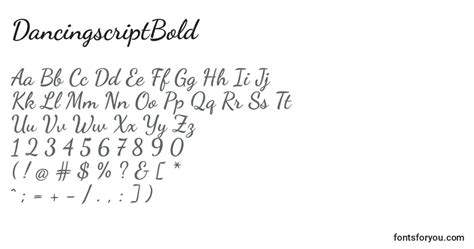 DancingscriptBold
Aa Bb Cc Dd Ee Ff Gg Hh Ii Jj
Kk Ll Mm Nn Oo Pp Qq Rr Ss Tt
Uu Vv Ww Xx Yy Zz
1 2 3 4 5 6 7 8 9 0
( ! @ # $ % ? & [ *
^ ; = + - / . , : ] )
fontsforyou.com